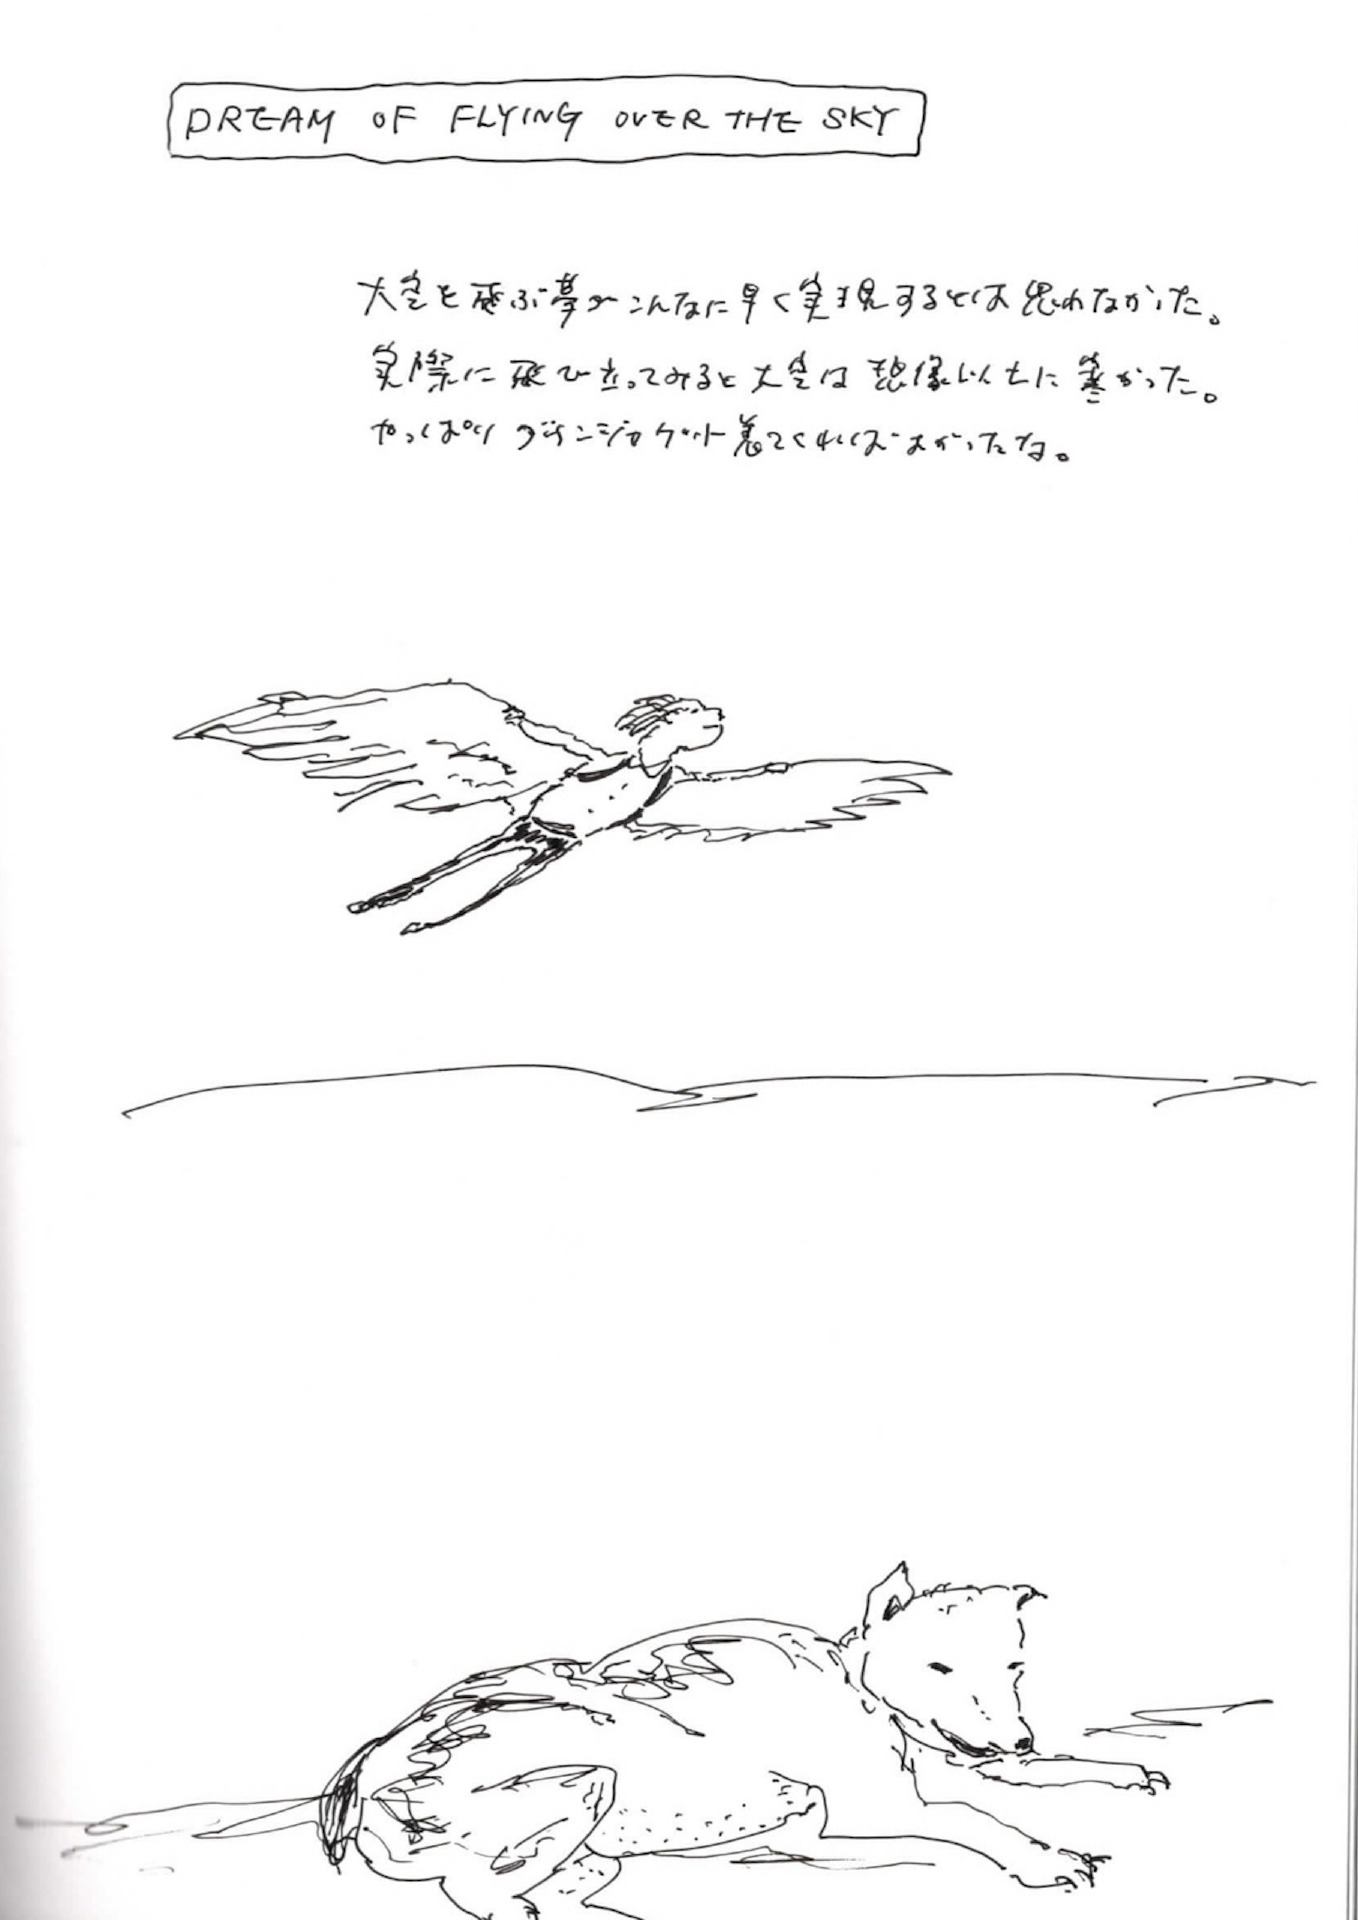 DREAM OF FLYING OVER THE SKY
大空を飛ぶ夢がこんなに早く実現するとは思わなかった。
実際に飛び立ってみると大空は想像以上に寒かった。
やっぱりダウンジャケット着てくればよかったな。